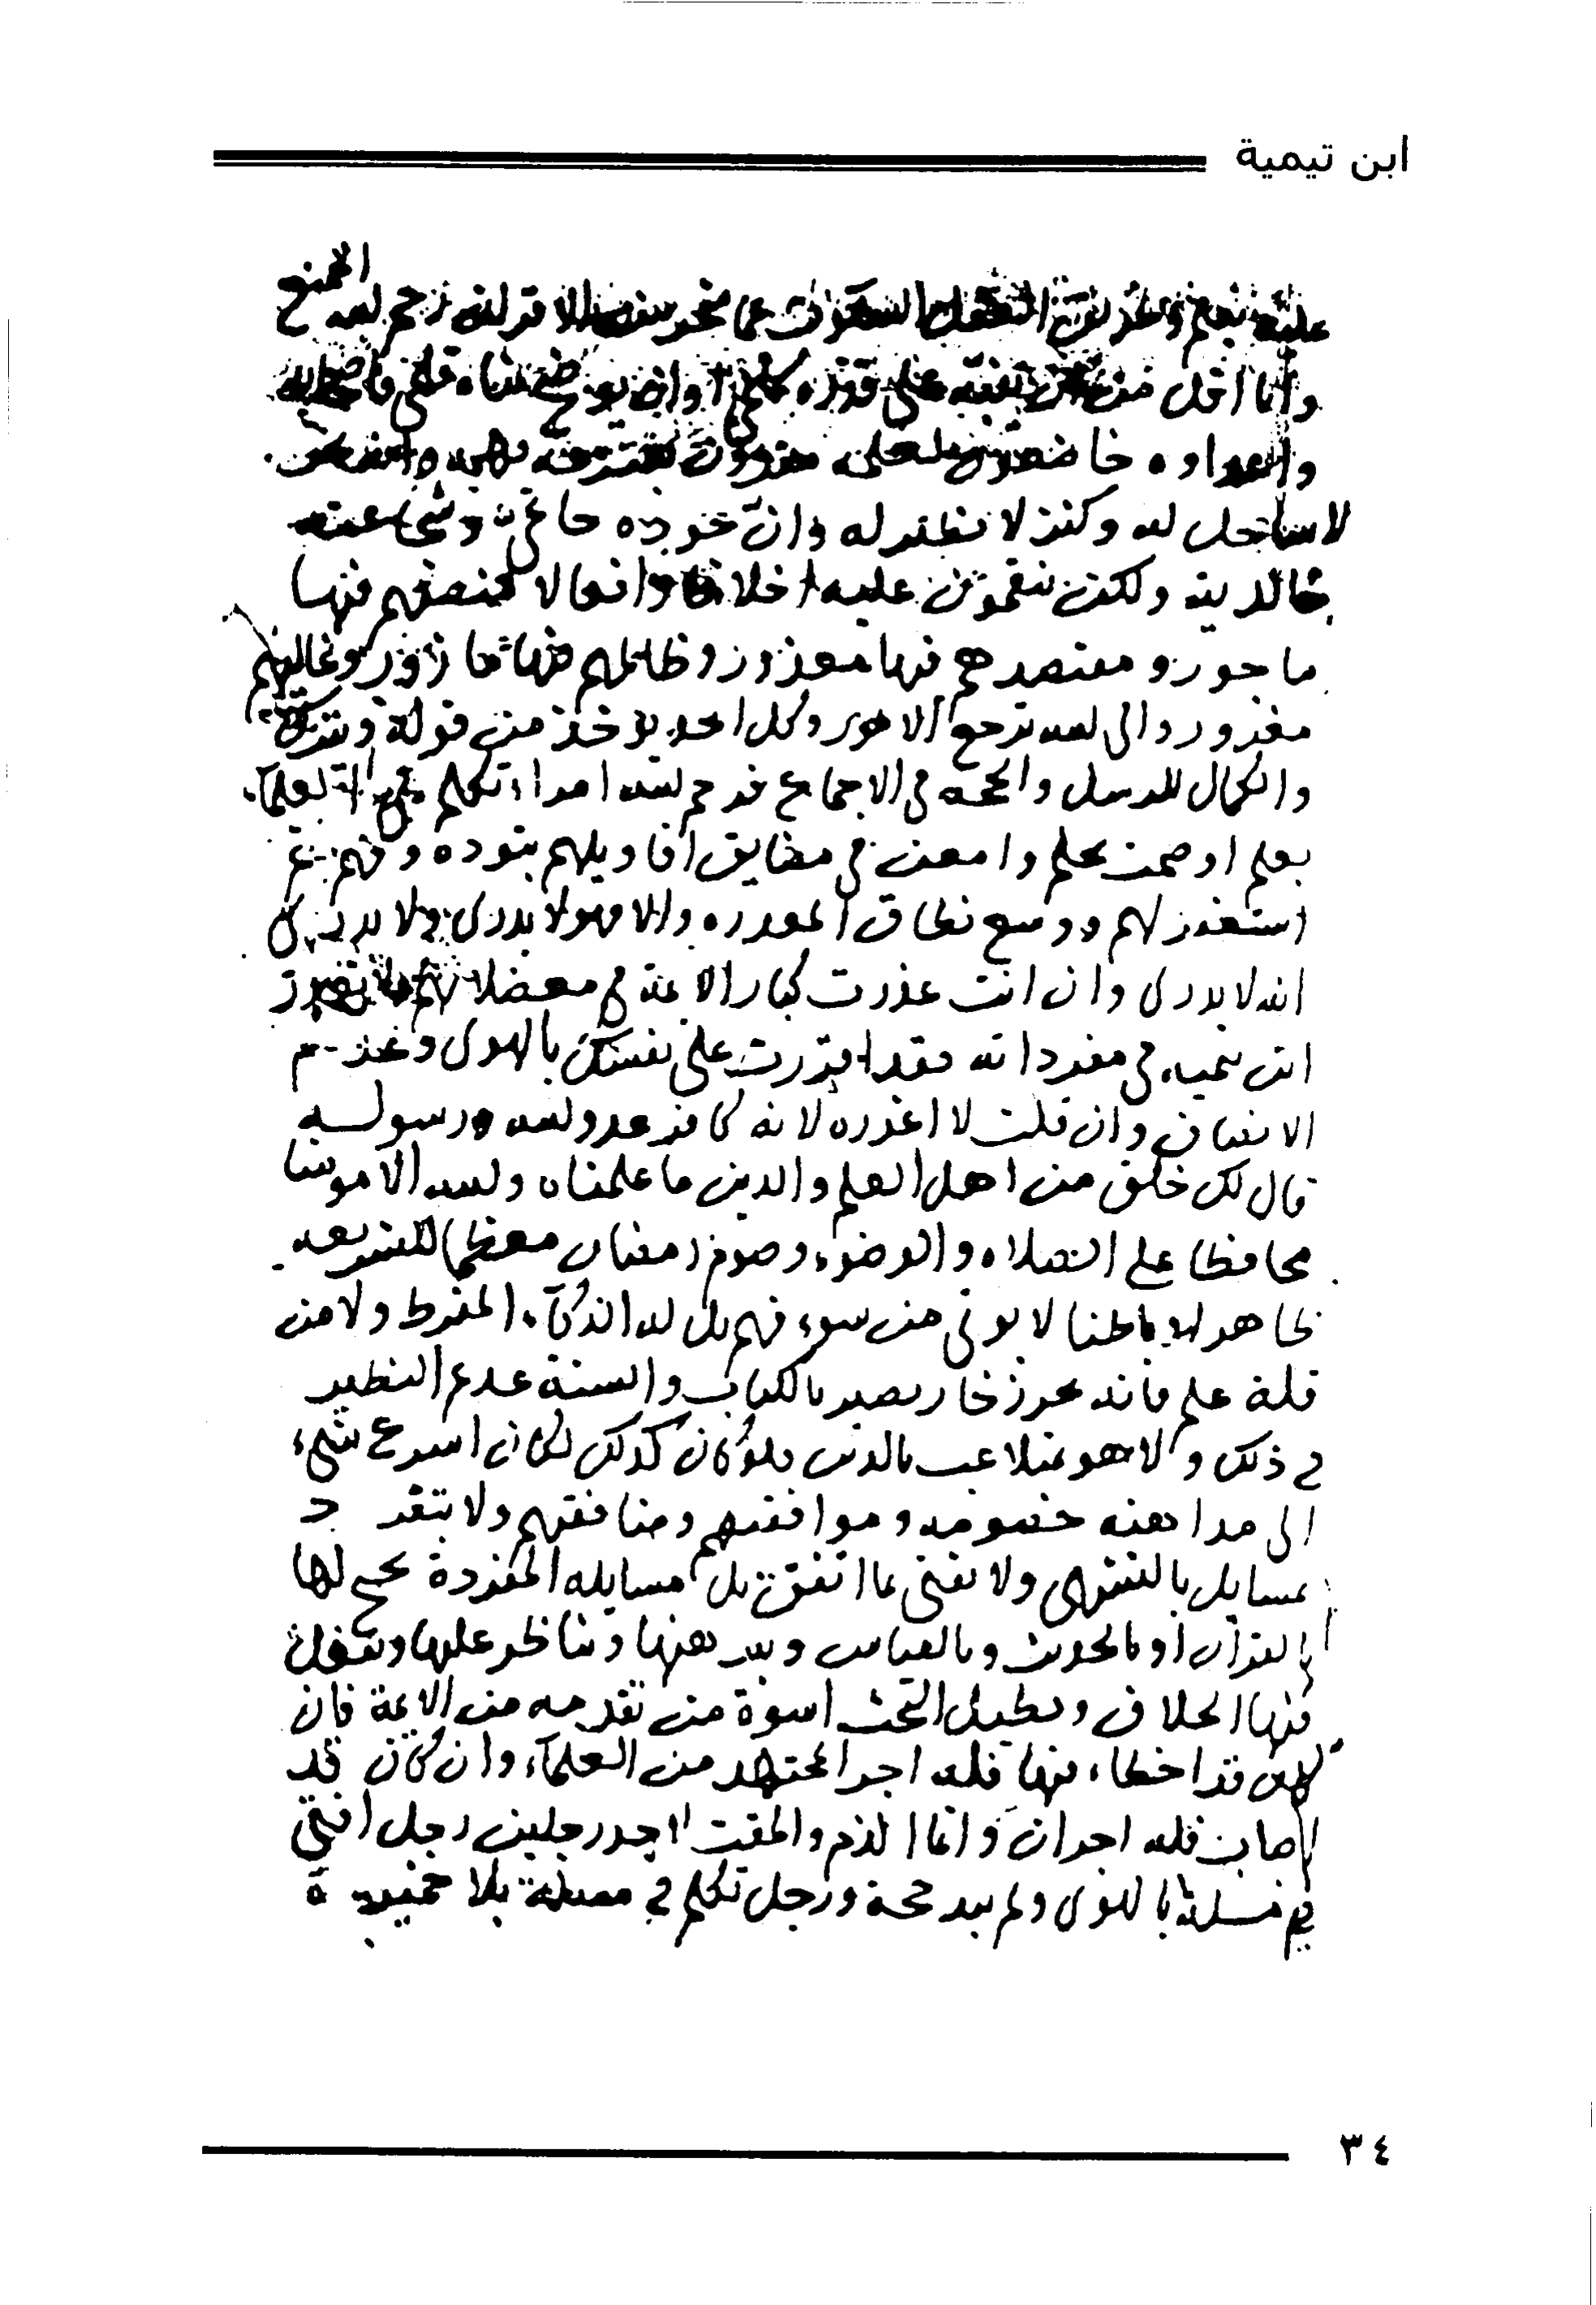 ابن تيمية
وانا اقل من ان ينبه على قدره كلمي او ان يوضح نباه قلمي فاصحابه
واعداوه خاضعون لعلمه مقرون بسرعة فهمه وانه بحر
لا ساحل له وكنز لا نظير له وان جوده حاتمي وشجاعته
خالدية ولكن ينقمون عليه اخلاقا وافعالا منصفهم فيها
ماجور ومقتصدهم فيها معذور وظالمهم فيها مازور وغاليهم
مغرور والى الله ترجع الامور وكل احد يوخذ من قوله ويترك
والكمال للرسل والحجة في الاجماع فرحم الله امراء تكلم في العلماء
بعلم او صمت بحلم وامعن في مضايق اقاويلهم بتوده وفهم ثم
استغفر لهم ووسع نطاق المعذره والا فهو لا يدري ولا يدري
انه لا يدري وان انت عذرت كبار الائمة في معضلاتهم ولا تعذر
ابن تيمية في مفرداته فقد اقررت على نفسك بالهوى وعدم
الانصاف وان قلت لا اعذره لانه كافر عدو لله ورسوله
قال لك خلق من اهل العلم والدين ما علمناه والله الا مومنا
محافظا على الصلاه والوضوء وصوم رمضان معظما للشريعه
ظاهرا وباطنا لا يوتى من سوء فهم بل له الذكاء المفرط ولا من
قلة علم فانه بحر زخار بصير بالكتاب والسنة عديم النظير
في ذلك ولا هو بمتلاعب بالدين فلو كان كذلك لكان اسرع شيء
الى مداهنه خصومه وموافقتهم ومنافقتهم ولا يتفرد
بمسايل بالتشهي ولا يفتي بما اتفق بل مسايله المفردة يحتج لها
بالقران او بالحديث وبالقياس ويبرهنها ويناظر عليها وينقل
فيها الخلاف ويطيل البحث اسوة من تقدمه من الائمة فان
كان قد اخطاء فيها فله اجر المجتهد من العلماء وان كان قد
اصاب فله اجران وانما الذم والمقت لاحد رجلين رجل افتى
في مسلة بالهوى ولم يبد حجة ورجل تكلم في مسلة بلا خميرة
٣٤